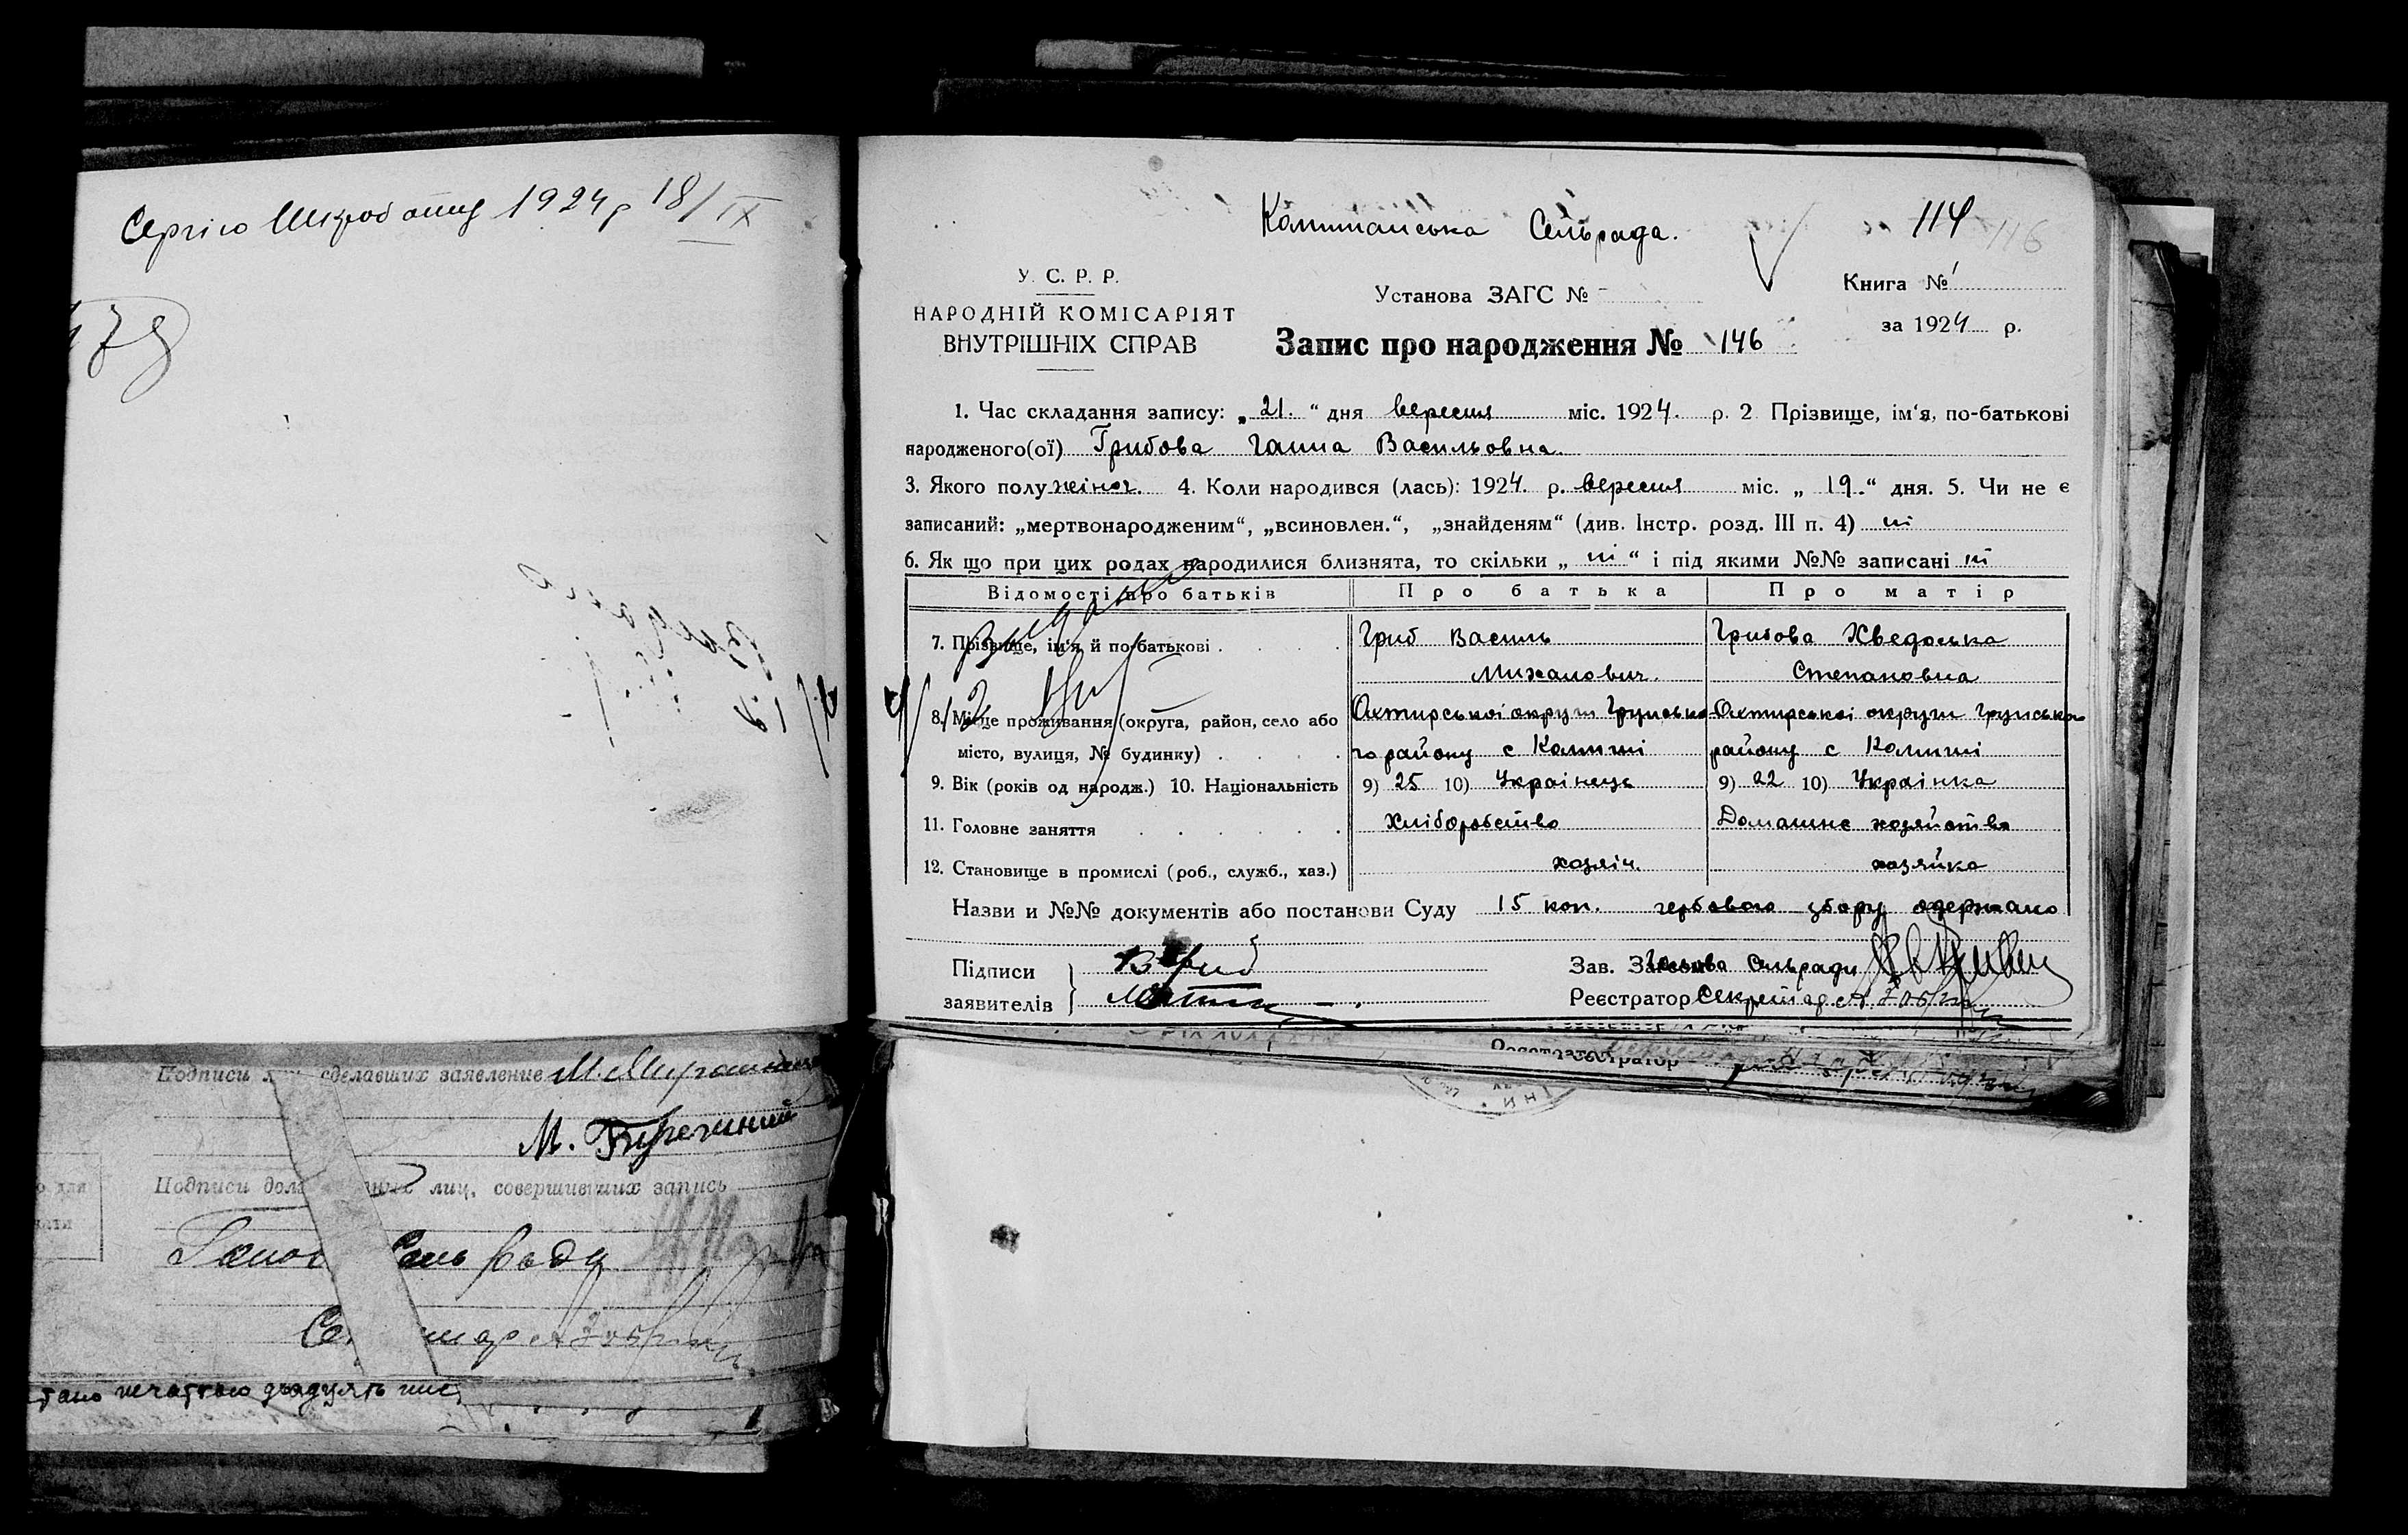 Сергію 1924 р 18/IX
Комишанська Сельрада.
114
116
У. С. Р. Р.
НАРОДНІЙ КОМІСАРІЯТ
ВНУТРІШНІХ СПРАВ
Установа ЗАГС №
Книга № 1
за 1924 р.
Запис про народження № 146
1. Час складання запису: „ 21. “ дня вересня міс. 1924. р. 2 Прізвище, ім‘я, по-батькові
народженого(ої) Грибова Ганна Васильовна.
3. Якого полу жіноч. 4. Коли народився (лась): 1924. р. вересня міс. „ 19.“ дня. 5. Чи не є
записаний: „мертвонародженим“, „всиновлен.“, „знайденям“ (див. Інстр. розд. III п. 4) ні
6. Як що при цих родах народилися близнята, то скільки „ ні “ і під якими №№ записані ні
Відомості про батьків Про батька Про матір
7. Прізвище, ім‘я й по-батькові Гриб Василь Грибова Хведоська
Михалович. Степановна
8. Місце проживання (округа, район, село або Охтирської округи Грунсько- Охтирської округи Грунсько
місто, вулиця, № будинку) го району с Комиші району с Комиші
9. Вік (років од народж.) 10. Національність 9) 25 10) Українець 9) 22 10) Українка
11. Головне заняття Хліборобство Домашнє хозяйство
12. Становище в промислі (роб., служб., хаз.) хозяін. хозяйка
Назви и №№ документів або постанови Суду 15 коп. гербового збору одержано
Підписи заявителів В Гриб
Зав. Загсом Голова Сельради
Реєстратор Секретар
Реєстратор
Подписи сделавших заявление
М.
Подписи лиц, совершивших запись
Сельради
печаткою двадцять